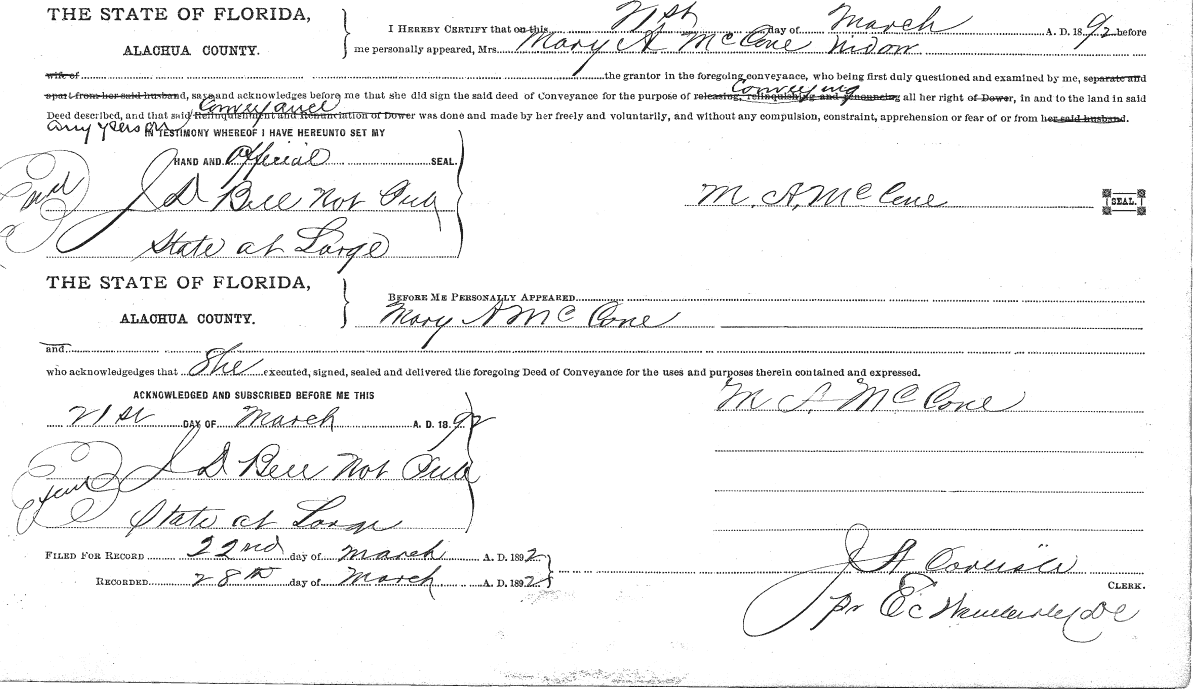 THE STATE OF FLORIDA,
ALACHUA COUNTY.
I HEREBY CERTIFY that on this 21st day of March A. D. 1892 before
me personally appeared, Mrs. Mary A McCone Widow
wife of the grantor in the foregoing conveyance, who being first duly questioned and examined by me, separate and
Conveying
apart from her said husband, says and acknowledges before me that she did sign the said deed of Conveyance for the purpose of releasing, relinquishing and renouncing all her right of Dower, in and to the land in said
Conveyance
Deed described, and that said Relinquishment and Renunciation of Dower was done and made by her freely and voluntarily, and without any compulsion, constraint, apprehension or fear of or from her said husband.
any person
IN TESTIMONY WHEREOF I HAVE HEREUNTO SET MY
HAND AND Official SEAL.
Seal
J D Bell Not Pub
State at Large
M. A. McCone SEAL.
THE STATE OF FLORIDA,
ALACHUA COUNTY.
BEFORE ME PERSONALLY APPEARED
Mary A McCone
and
who acknowledgedges that She executed, signed, sealed and delivered the foregoing Deed of Conveyance for the uses and purposes therein contained and expressed.
ACKNOWLEDGED AND SUBSCRIBED BEFORE ME THIS
21st DAY OF March A. D. 1892
M A McCone
Seal
J D Bell Not Pub
State at Large
FILED FOR RECORD 22nd day of March A. D. 1892
RECORDED 28th day of March A. D. 1892
J A Carlisle
CLERK.
pr E C DC